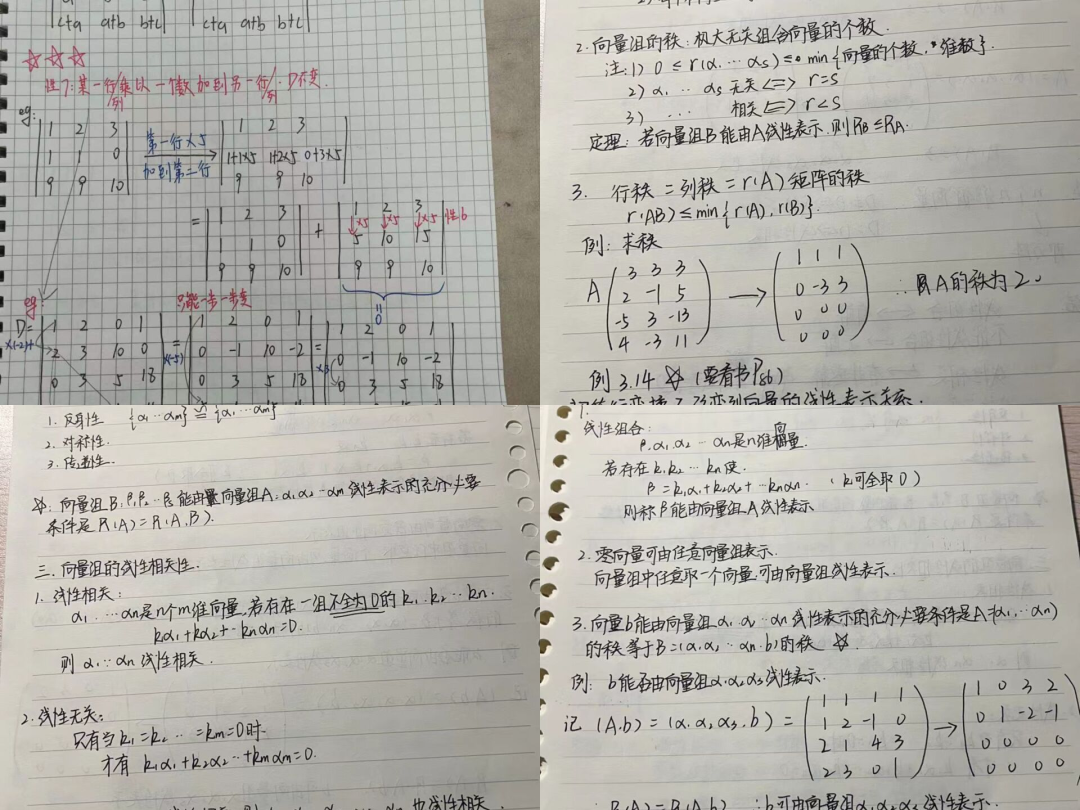 c+a a+b b+c c+a a+b b+c
☆☆☆
性7:某一行/列乘以一个数加到另一行/列.D不变.
eg:
1 2 3
1 1 0
9 9 10
第一行×5
加到第二行
1 2 3
1+1×5 1+2×5 0+3×5
9 9 10
=
1 2 3
1 1 0
9 9 10
+
1 2 3
×5 ×5 ×5 性6
5 10 15
9 9 10
=0
只能一步一步变
eg:
D=
1 2 0 1
2 3 10 0
0 3 5 18
×(-2)+
=
1 2 0 1
0 -1 10 -2
0 3 5 18
×(-5)
=
1 2 0 1
0 -1 10 -2
0 3 5 18
×3
2.向量组的秩:极大无关组含向量的个数.
注:1) 0 ≤ r(α1 ... αs) ≤ min{向量的个数,维数}.
2) α1 ... αs 无关 <=> r=s
3) ... 相关 <=> r<s
定理:若向量组B能由A线性表示.则RB≤RA.
3. 行秩=列秩=r(A)矩阵的秩
r(AB)≤min{r(A),r(B)}.
例:求秩
A
3 3 3
2 -1 5
-5 3 -13
4 -3 11
→
1 1 1
0 -3 3
0 0 0
0 0 0
∴ A的秩为2。
例3.14 ☆(要看书P86)
1. 反身性 {α1...αm} ≅ {α1...αm}
2. 对称性.
3. 传递性.
☆:向量组B:β1,β2...βs能由向量组A:α1,α2...αm线性表示的充分必要
条件是R(A)=R(A,B).
三.向量组的线性相关性.
1. 线性相关:
α1 ... αn是n个m维向量,若存在一组不全为0的k1.k2...kn.
kα1+kα2+...knαn=0.
则α1...αn线性相关.
2.线性无关:
只有当k1=k2...=km=0时.
才有 k1α1+k2α2...+kmαm=0.
也线性相关
线性组合:
β.α1.α2 ... αn是n维向量.
若存在k1k2...kn使.
β=k1α1+k2α2+...knαn. (k可全取0)
则称β能由向量组A线性表示
2.零向量可由任意向量组表示.
向量组中任意取一个向量,可由向量组线性表示.
3.向量b能由向量组α1.α2...αn线性表示的充分必要条件是A=(α1,...αn)
的秩等于B=(α1.α2...αn.b)的秩 ☆.
例: b能否由向量组α1.α2.α3线性表示.
记 (A.b)=(α1.α2,α3.b)=
1 1 1 1
1 2 -1 0
2 1 4 3
2 3 0 1
→
1 0 3 2
0 1 -2 -1
0 0 0 0
0 0 0 0
R(A)=R(A.b) ∴b可由向量组α1,α2,α3线性表示.